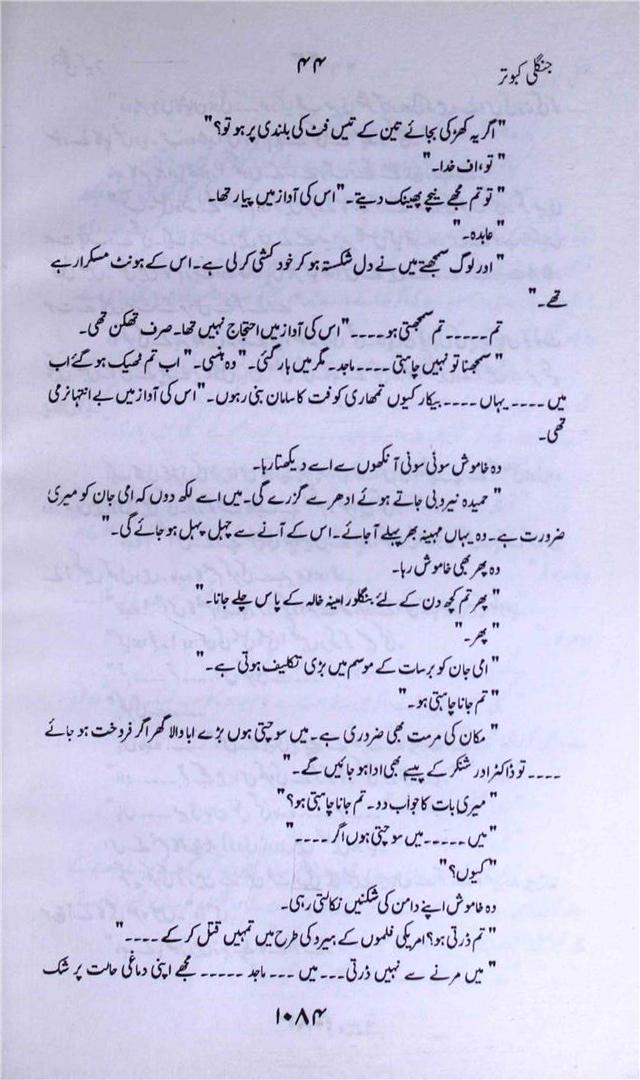 جنگلی کبوتر
۴۴
"اگر یہ کھڑکی بجائے تین کے تیس فٹ کی بلندی پر ہو تو؟"
"تو، اف خدا۔"
"تو تم مجھے نیچے پھینک دیتے۔" اس کی آواز میں پیار تھا۔
عابدہ۔"
"اور لوگ سمجھتے میں نے دل شکستہ ہو کر خود کشی کر لی ہے۔ اس کے ہونٹ مسکرا رہے
تھے۔"
تم ۔۔۔۔ تم سمجھتی ہو ۔۔۔۔" اس کی آواز میں احتجاج نہیں تھا۔ صرف تھکن تھی۔
"سمجھنا تو نہیں چاہتی ۔۔۔۔ ماجد۔ مگر میں ہار گئی۔" وہ ہنسی۔ "اب تم ٹھیک ہو گئے اب
میں ۔۔۔۔ یہاں ۔۔۔۔ بیکار کیوں تمھاری کوفت کا سامان بنی رہوں۔" اس کی آواز میں بے انتہا نرمی
تھی۔
وہ خاموش سونی سونی آنکھوں سے اسے دیکھتا رہا۔
"حمیدہ نیروبی جاتے ہوئے ادھر سے گزرے گی۔ میں اسے لکھ دوں کہ امی جان کو میری
ضرورت ہے۔ وہ یہاں مہینہ بھر پہلے آ جائے۔ اس کے آنے سے چہل پہل ہو جائے گی۔"
وہ پھر بھی خاموش رہا۔
"پھر تم کچھ دن کے لئے بنگلور امینہ خالہ کے پاس چلے جانا۔"
"پھر۔"
"امی جان کو برسات کے موسم میں بڑی تکلیف ہوتی ہے۔"
"تم جانا چاہتی ہو۔"
"مکان کی مرمت بھی ضروری ہے۔ میں سوچتی ہوں بڑے ابا والا گھر اگر فروخت ہو جائے
۔۔۔۔ تو ڈاکٹر اور شنکر کے پیسے بھی ادا ہو جائیں گے۔"
"میری بات کا جواب دو۔ تم جانا چاہتی ہو؟"
"میں ۔۔۔۔۔ میں سوچتی ہوں اگر ۔۔۔۔"
"کیوں؟"
وہ خاموش اپنے دامن کی شکنیں نکالتی رہی۔
"تم ڈرتی ہو؟ امریکی فلموں کے ہیرو کی طرح میں تمہیں قتل کر کے ۔۔۔۔"
"میں مرنے سے نہیں ڈرتی ۔۔۔ میں ۔۔۔ ماجد ۔۔۔۔۔ مجھے اپنی دماغی حالت پر شک
۱۰۸۴